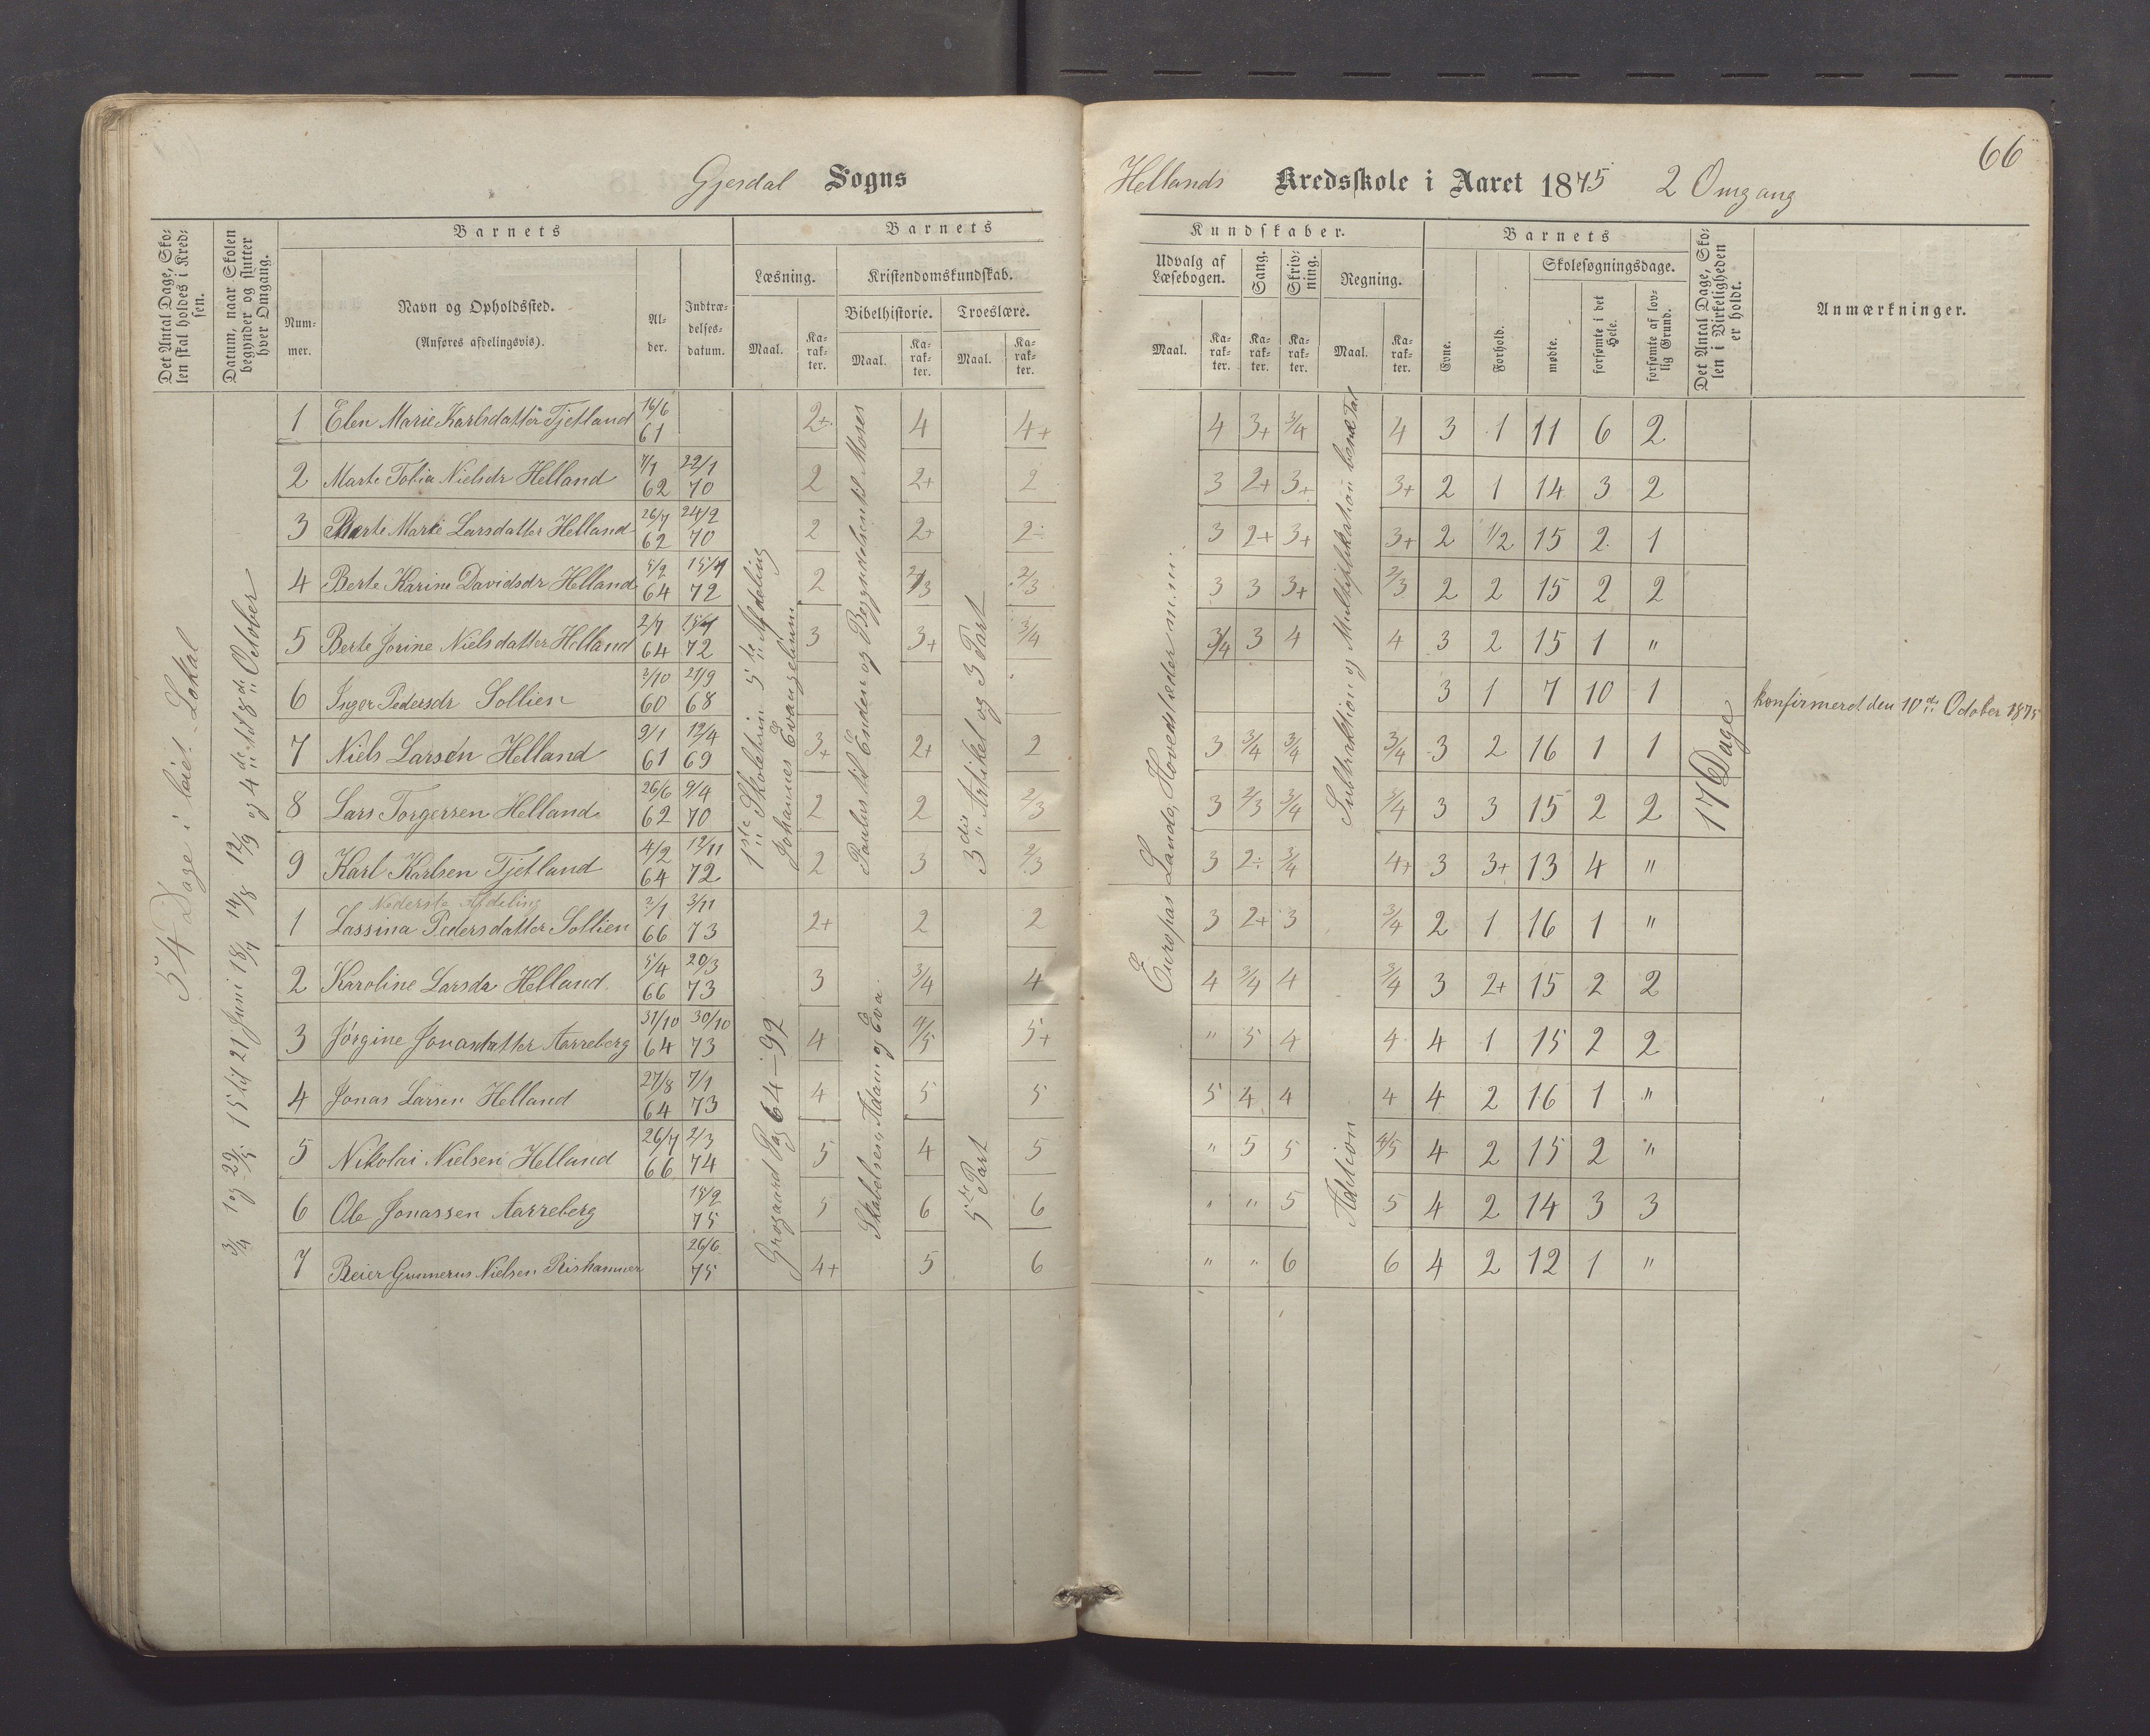 66
Gjesdal Sogns Hellands Kredsskole i Aaret 1875 2 Omgang
Det Antal Dage, Sko-
len skal holdes i Kred-
sen.
Datum, naar Skolen
begynder og slutter
hver Omgang.
Barnets
Num-
mer.
Navn og Opholdssted.
(Anføres afdelingsvis).
Al-
der.
Indtræ-
delses-
datum.
Barnets
Læsning.
Maal.
Ka-
rak-
ter.
Kristendomskundskab.
Bibelhistorie.
Maal.
Ka-
rak-
ter.
Troeslære.
Maal.
Ka-
rak-
ter.
Kundskaber.
Udvalg af
Læsebogen.
Maal.
Ka-
rak-
ter.
Sang.
Ka-
rak-
ter.
Skriv-
ning.
Ka-
rak-
ter.
Regning.
Maal.
Ka-
rak-
ter.
Barnets
Evne.
Forhold.
Skolesøgningsdage.
mødte.
forsømte i det
Hele.
forsømte af lov-
lig Grund.
Det Antal Dage, Sko-
len i Virkeligheden
er holdt.
Anmærkninger.
54 Dage i leiet Lokal
3/4 1 og 29/5 15 til 21 Juni 18/7 14/8 12/9 og 4de til 8de October
1ste Skoletrin 5te Afdeling
Johannes Evangelium
Paulus til Enden og Begyndelsen til Moses
3die Artikel og 3 Part
Europas Lande, Hovedstæder m.m.
Subtraktion og Multiplikation benævnte Tal
17 Dage
1 Elen Marie Karlsdatter Tjetland 16/6 61 2+ 4 4+ 4 3+ 3/4 4 3 1 11 6 2
2 Marte Tobia Nielsdr Helland 7/1 62 22/1 70 2 2+ 2 3 2+ 3+ 3+ 2 1 14 3 2
3 Berte Marie Larsdatter Helland 26/7 62 24/2 70 2 2+ 2÷ 3 2+ 3+ 3+ 2 1/2 15 2 1
4 Berte Karine Davidsdr Helland 5/2 64 15/4 72 2 2/3 2/3 3 3 3+ 2/3 2 2 15 2 2
5 Berte Jorine Nielsdatter Helland 2/7 64 15/4 72 3 3+ 3/4 3/4 3 4 4 3 2 15 1 "
6 Inger Pedersdr Sollien 3/10 60 21/9 68 3 1 7 10 1 konfirmeret den 10de October 1875
7 Niels Larsen Helland 9/1 61 12/4 69 3+ 2+ 2 3 3/4 3/4 3/4 3 2 16 1 1
8 Lars Torgersen Helland 26/6 62 9/4 70 2 2 2/3 3 2/3 3/4 3/4 3 3 15 2 2
9 Karl Karlsen Tjetland 4/2 64 12/11 72 2 3 2/3 3 2÷ 3/4 4+ 3 3+ 13 4 "
Nederste Afdeling
Grøgaard Pag 64–92
Skabelsen, Adam og Eva.
5te Part
Adition
1 Lassina Pedersdatter Sollien 2/1 66 3/11 73 2+ 2 2 3 2+ 3 3/4 2 1 16 1 "
2 Karoline Larsdr Helland 5/4 66 20/3 73 3 3/4 4 4 3/4 4 3/4 3 2+ 15 2 2
3 Jørgine Jonasdatter Aarreberg 31/10 64 30/10 73 4 4/5 5+ " 5 4 4 4 1 15 2 2
4 Jonas Larsen Helland 27/8 64 7/1 73 4 5 5 5 4 4 4 4 2 16 1 "
5 Nikolai Nielsen Helland 26/7 66 2/3 74 5 4 5 " 5 5 4/5 4 2 15 2 "
6 Ole Jonassen Aarreberg 15/2 75 5 6 6 " " 5 5 4 2 14 3 3
7 Reier Gunnerus Nielsen Rishammer 26/6 75 4+ 5 6 " " 6 6 4 2 12 1 "